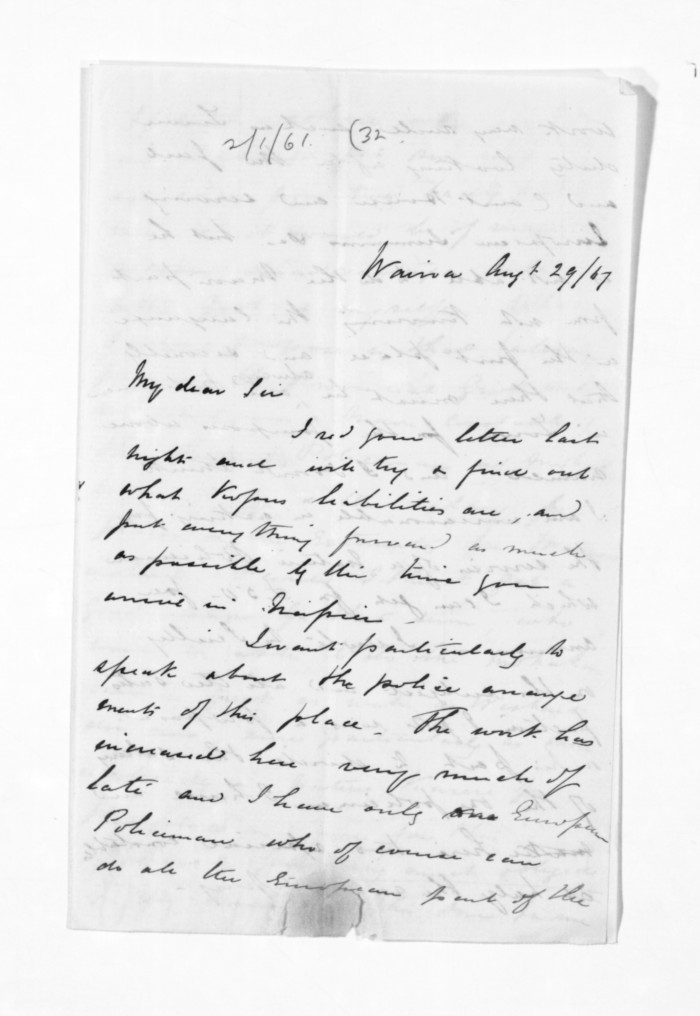 2/1/61. (32
Wairoa Augt 29/67
My dear Sir
I recd your letter last
night and will try & find out
what Kopus liabilities are, and
put everything forward as much
as possible by the time you
arrive in Napier.
I want particularly to
speak about the police arrange
ments of this place. The work has
increased here very much of
late and I have only one European
Policeman who of course can
do all the European part of the